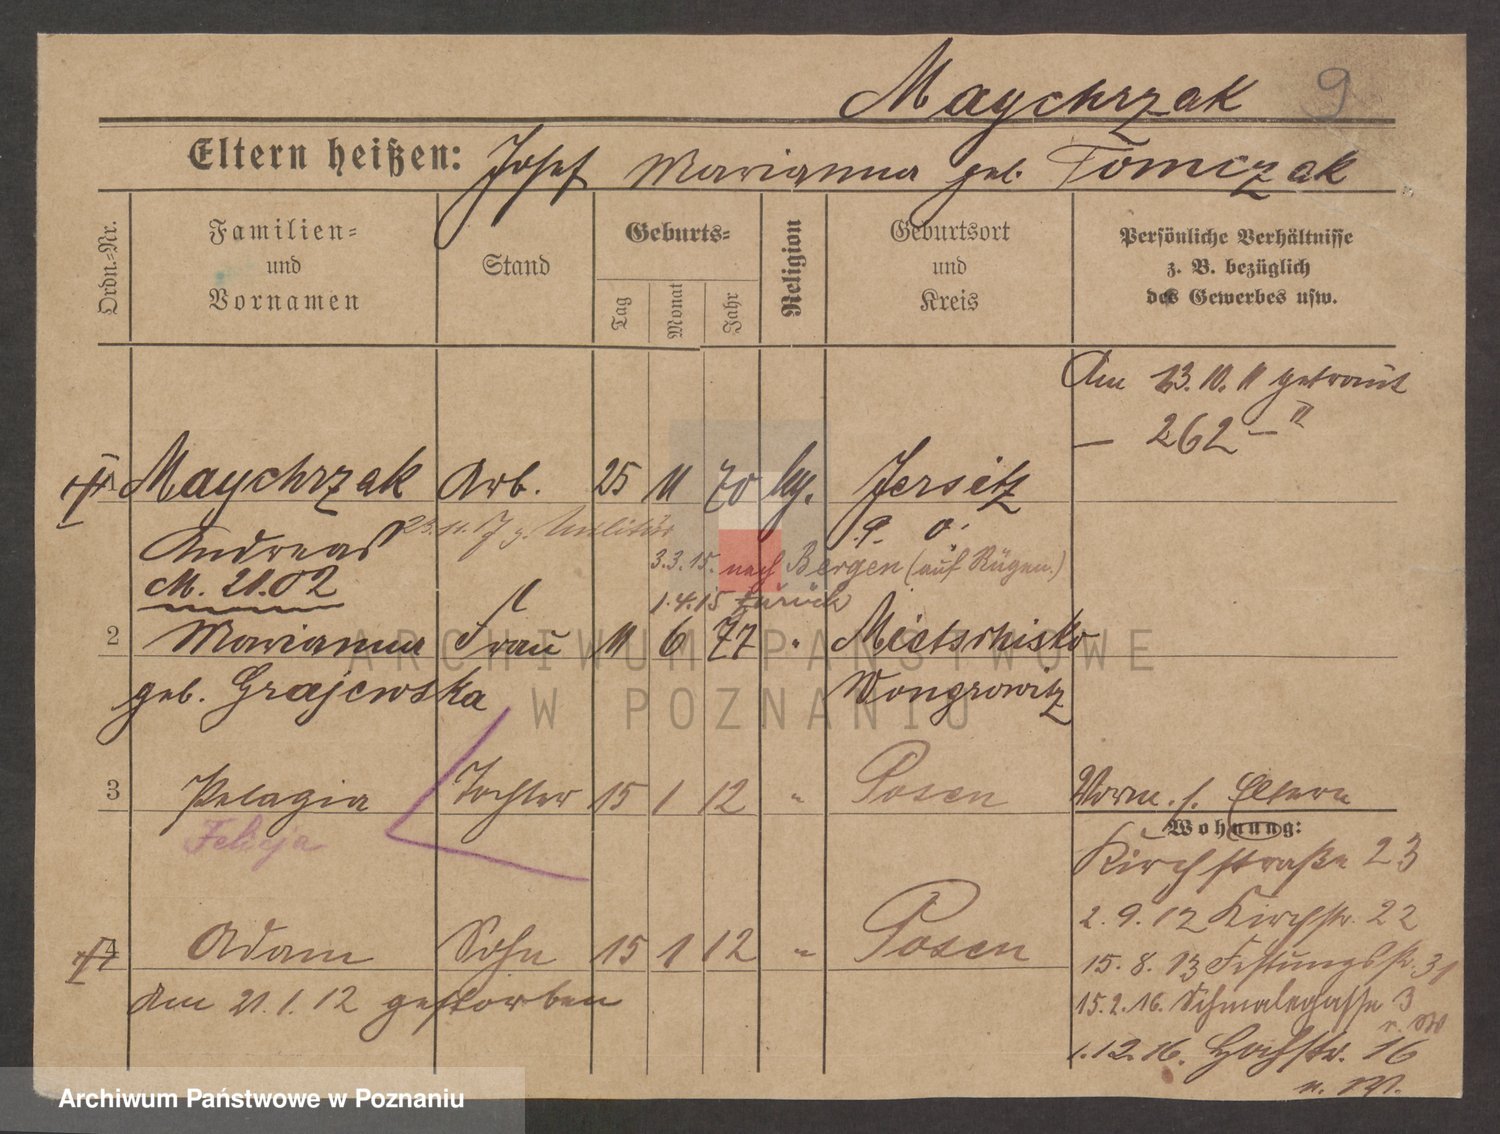 Maychrzak 9
Eltern heißen: Josef Marianna geb. Tomczak
Ordn.-Nr.
Familien- und Vornamen
Stand
Geburts-
Tag
Monat
Jahr
Religion
Geburtsort und Kreis
Persönliche Verhältnisse z. B. bezüglich des Gewerbes usw.
Am 23.10.11 getraut
— 262 — "
Maychrzak Arb. 25 11 70 kg. Jersitz
Andreas 23.11.17 z. Militär P. O.
3.3.15. nach Bergen (auf Rügen.)
M. 21.02
1.4.15 zurück
2 Marianna Frau 11 6 77 " Mietschisko
geb. Grajewska Wongrowitz
3 Pelagia Tochter 15 1 12 " Posen
Vorm. s. Eltern
Felicja
Wohnung:
Kirchstraße 23
2.9.12 Kirchstr. 22
4 Adam Sohn 15 1 12 " Posen
15.8.13 Festungsstr. 31
Am 21.1.12 gestorben
15.2.16. Schmalegasse 3
1.12.16. Hochstr. 16
ARCHIWUM PAŃSTWOWE
W POZNANIU
Archiwum Państwowe w Poznaniu